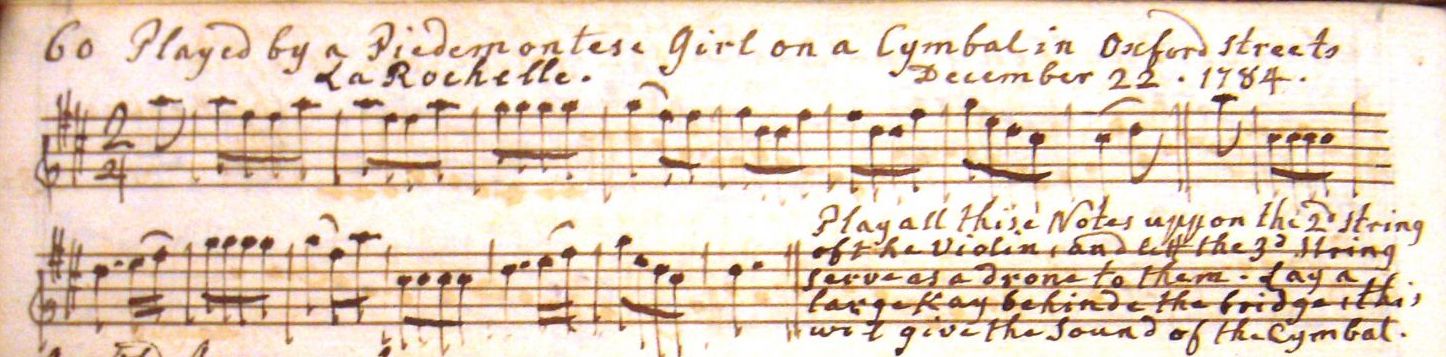 60 Played by a Piedemontese Girl on a Cymbal in Oxford Streets
La Rochelle. December 22. 1784.
2
4
Play all thise Notes uppon the 2d String
of the Violin, and lett the 3d String
serve as a drone to them. Lay a
large Kay behinde the bridge, this
wil give the Sound of the Cymbal.